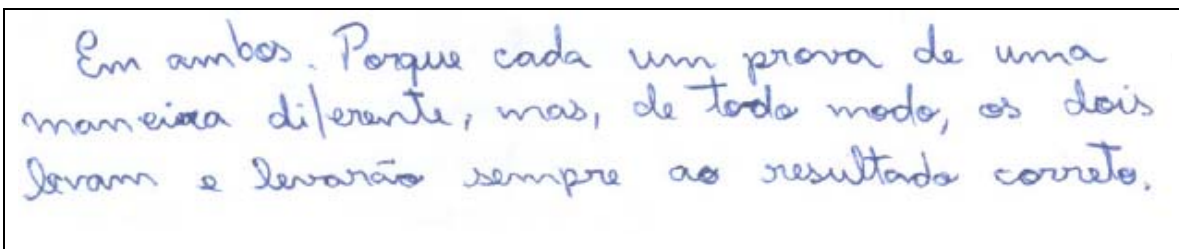 Em ambos. Porque cada um prova de uma
maneira diferente, mas, de todo modo, os dois
levam e levarão sempre ao resultado correto.